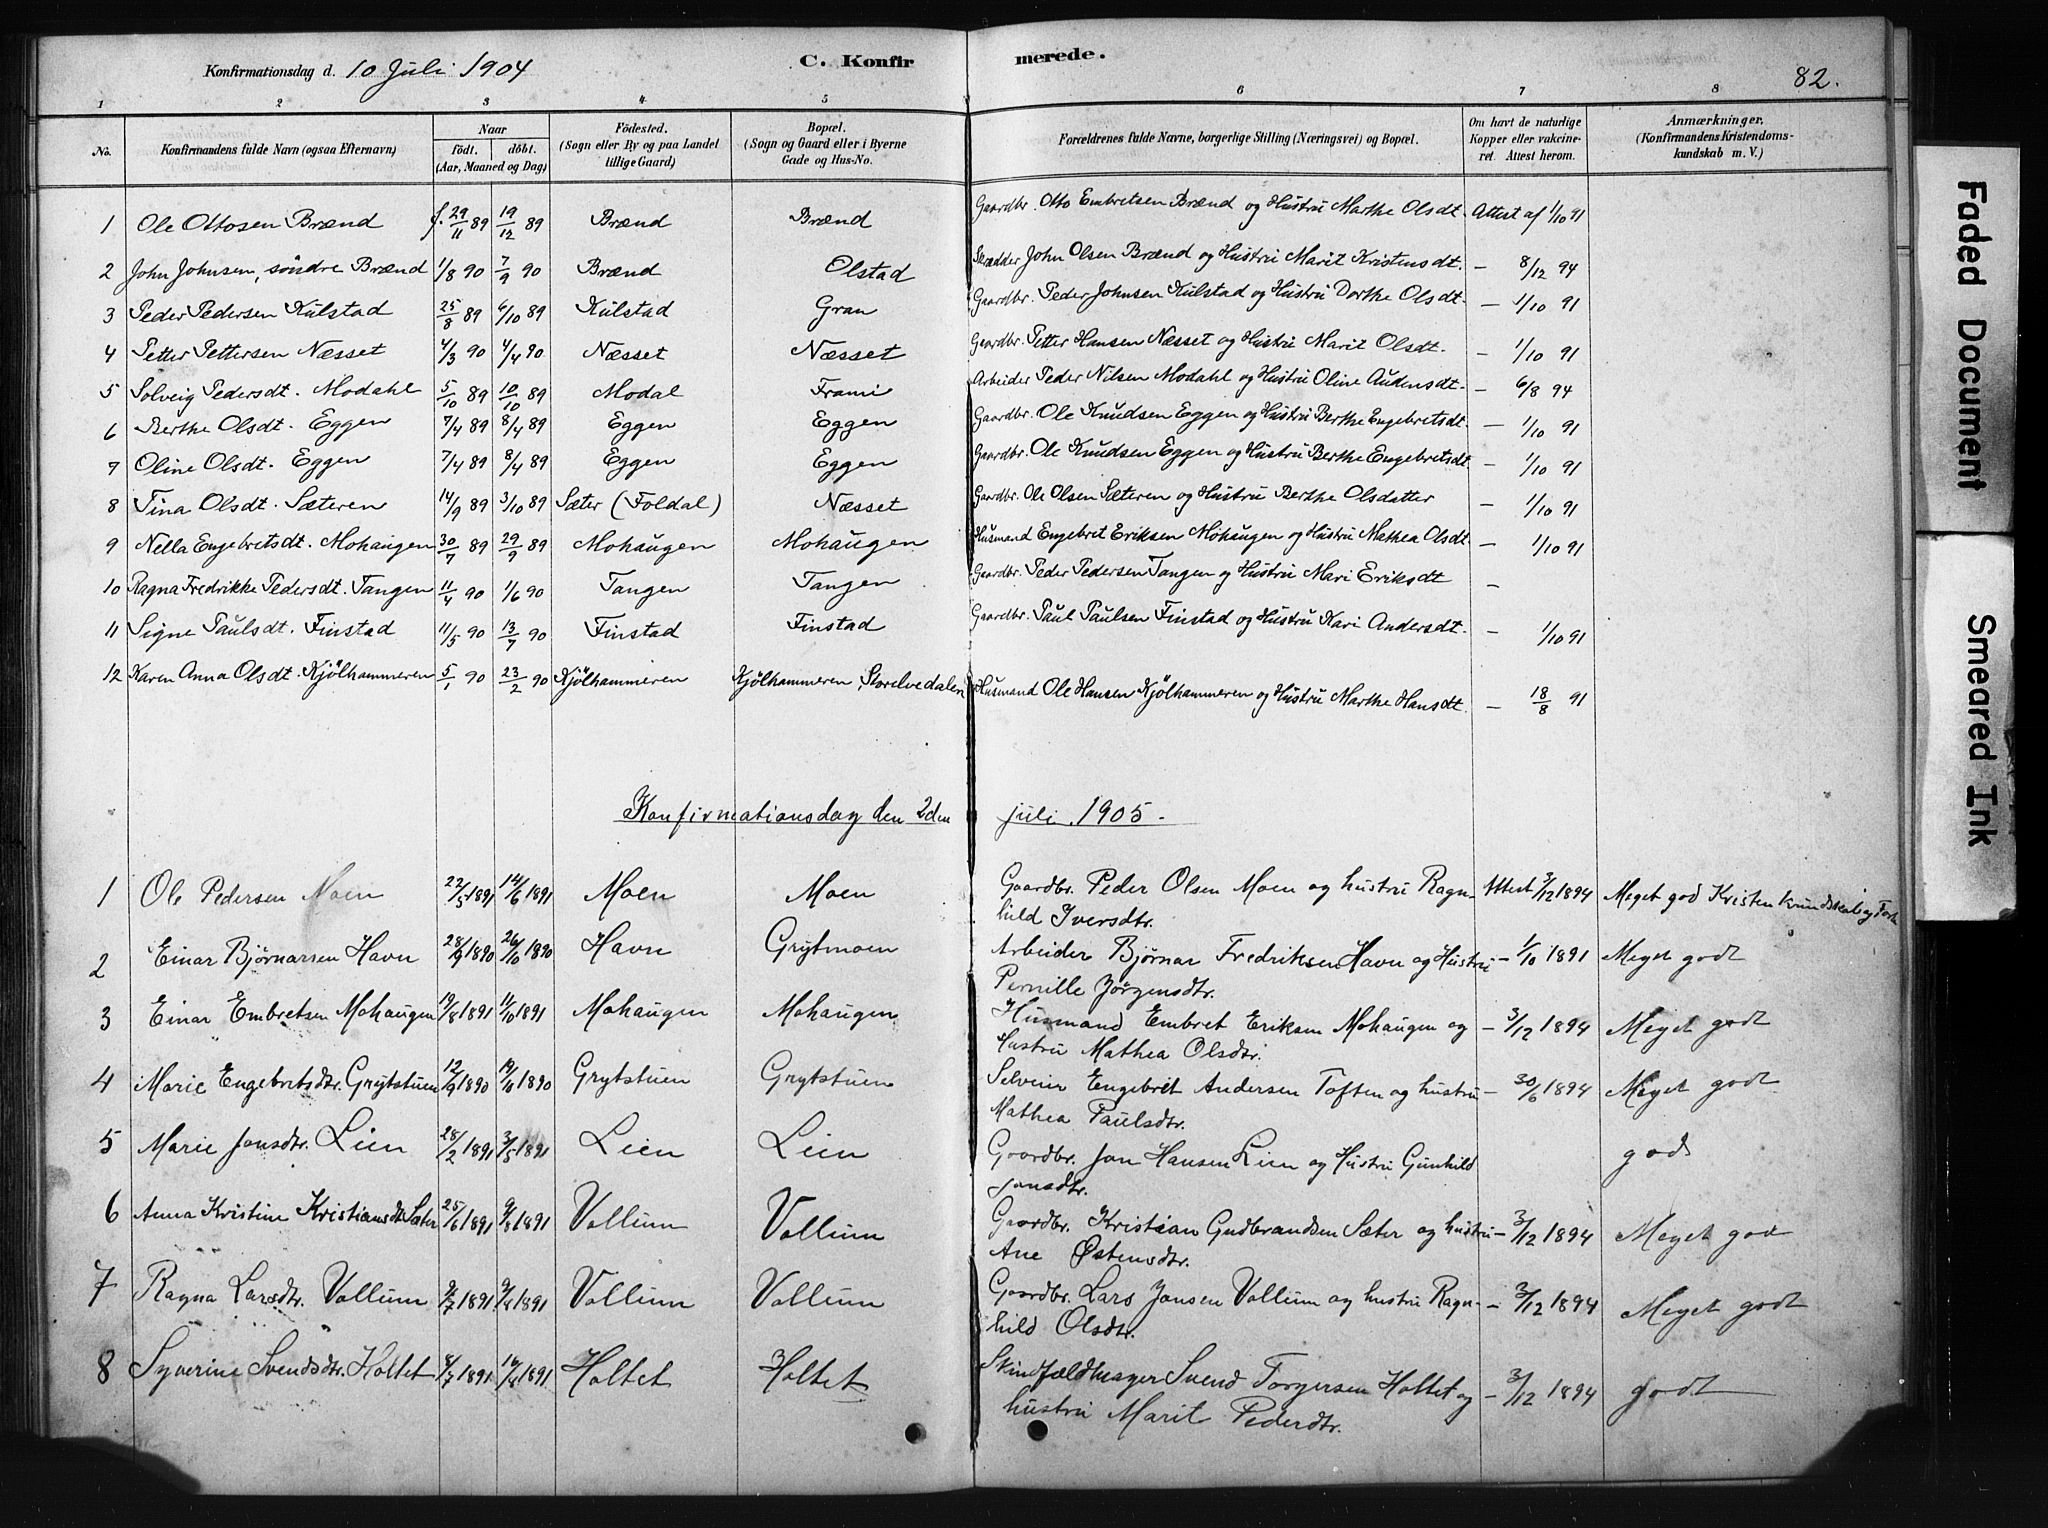 Konfirmationsdag d. 10 Juli 1904 C. Konfirmerede. 82.
1 2 3 4 5 6 7 8
No. Konfirmandens fulde Navn (ogsaa Efternavn) Naar födt. döbt. (Aar, Maaned og Dag) Födested. (Sogn eller By og paa Landet tillige Gaard) Bopæl. (Sogn og Gaard eller i Byerne Gade og Hus-No. Forældrenes fulde Navne, borgerlige Stilling (Næringsvei) og Bopæl. Om havt de naturlige Kopper eller vakcineret. Attest herom. Anmærkninger. (Konfirmandens Kristendomskundskab m. V.)
1 Ole Ottosen Brænd f. 29/11 89 19/12 89 Brænd Brænd Gaardbr. Otto Embretsen Brænd og Hustru Marthe Olsdt. Attest af 1/10 91
2 John Johnsen, söndre Brænd 1/8 90 7/9 90 Brænd Olstad Skrædder John Olsen Brænd og Hustru Marit Kristensdt. — 8/12 94
3 Peder Pedersen Kulstad 25/8 89 6/10 89 Kulstad Gran Gaardbr. Peder Johnsen Kulstad og Hustru Dorthe Olsdt. — 1/10 91
4 Petter Pettersen Næsset 4/3 90 4/4 90 Næsset Næsset Gaardbr. Petter Hansen Næsset og Hustru Marit Olsdt. — 1/10 91
5 Solveig Pedersdt. Modahl 5/10 89 10/10 89 Modal Frami Arbeider Peder Nilsen Modahl og Hustru Oline Audensdt. — 6/8 94
6 Berthe Olsdt. Eggen 7/4 89 8/4 89 Eggen Eggen Gaardbr. Ole Knudsen Eggen og Hustru Berthe Engebretsdt. — 1/10 91
7 Oline Olsdt. Eggen 7/4 89 8/4 89 Eggen Eggen Gaardbr. Ole Knudsen Eggen og Hustru Berthe Engebretsdt. — 1/10 91
8 Tina Olsdt. Sæteren 14/9 89 3/10 89 Sæter (Foldal) Næsset Gaardbr. Ole Olsen Sæteren og Hustru Berthe Olsdatter — 1/10 91
9 Nella Engebretsdt. Mohaugen 30/7 89 29/9 89 Mohaugen Mohaugen Husmand Engebret Eriksen Mohaugen og Hustru Mathea Olsdt. — 1/10 91
10 Ragna Fredrikke Pedersdt. Tangen 11/4 90 1/6 90 Tangen Tangen Gaardbr. Peder Pedersen Tangen og Hustru Mari Eriksdt —
11 Signe Paulsdt. Finstad 11/5 90 13/7 90 Finstad Finstad Gaardbr. Paul Paulsen Finstad og Hustru Kari Andersdt. — 1/10 91
12 Karen Anna Olsdt. Kjölhammeren 5/1 90 23/2 90 Kjölhammeren Kjölhammeren, Storelvedalen Husmand Ole Hansen Kjölhammeren og Hustru Marthe Hansdt. — 18/8 91
Konfirmationsdag den 2den juli 1905 -
1 Ole Pedersen Moen 22/5 1891 14/6 1891 Moen Moen Gaardbr. Peder Olsen Moen og hustru Ragn- Attest 3/12 1894 Meget god Kristen kundskab og
hild Iversdtr.
2 Einar Bjørnarsen Havn 28/9 1890 26/10 1890 Havn Grytmoen Arbeider Bjørnar Fredriksen Havn og Hustru — 1/10 1891 Meget godt
Pernille Jørgensdtr.
3 Einar Embretsen Mohaugen 19/8 1891 11/10 1891 Mohaugen Mohaugen Husmand Embret Eriksen Mohaugen og — 3/12 1894 Meget godt
Hustru Mathea Olsdtr.
4 Marie Engebretsdtr. Grytstuen 12/9 1890 19/10 1890 Grytstuen Grytstuen Selveier Engebret Andersen Toften og hustru — 30/6 1894 Meget godt
Mathea Paulsdtr.
5 Marie Jonsdtr. Lien 28/2 1891 3/5 1891 Lien Lien Gaardbr. Jon Hansen Lien og Hustru Gunhild god
Jonsdtr.
6 Anna Kristine Kristiansdtr Sæter 25/6 1891 9/8 1891 Vollum Vollum Gaardbr. Kristian Gudbrandsen Sæter og hustru — 3/12 1894 Meget god
Ane Østensdtr.
7 Ragna Larsdtr. Vollum 1891 1891 Vollum Vollum Gaardbr. Lars Jonsen Vollum og hustru Ragn- — 3/12 1894 Meget godt
hild Olsdtr.
8 Syverine Svendsdtr. Holtet 8/7 1891 16/8 1891 Holtet Holtet Skindfældmager Svend Torgersen Holtet og — 3/12 1894 godt
hustru Marit Pedersdtr.
Faded Document
Smeared Ink